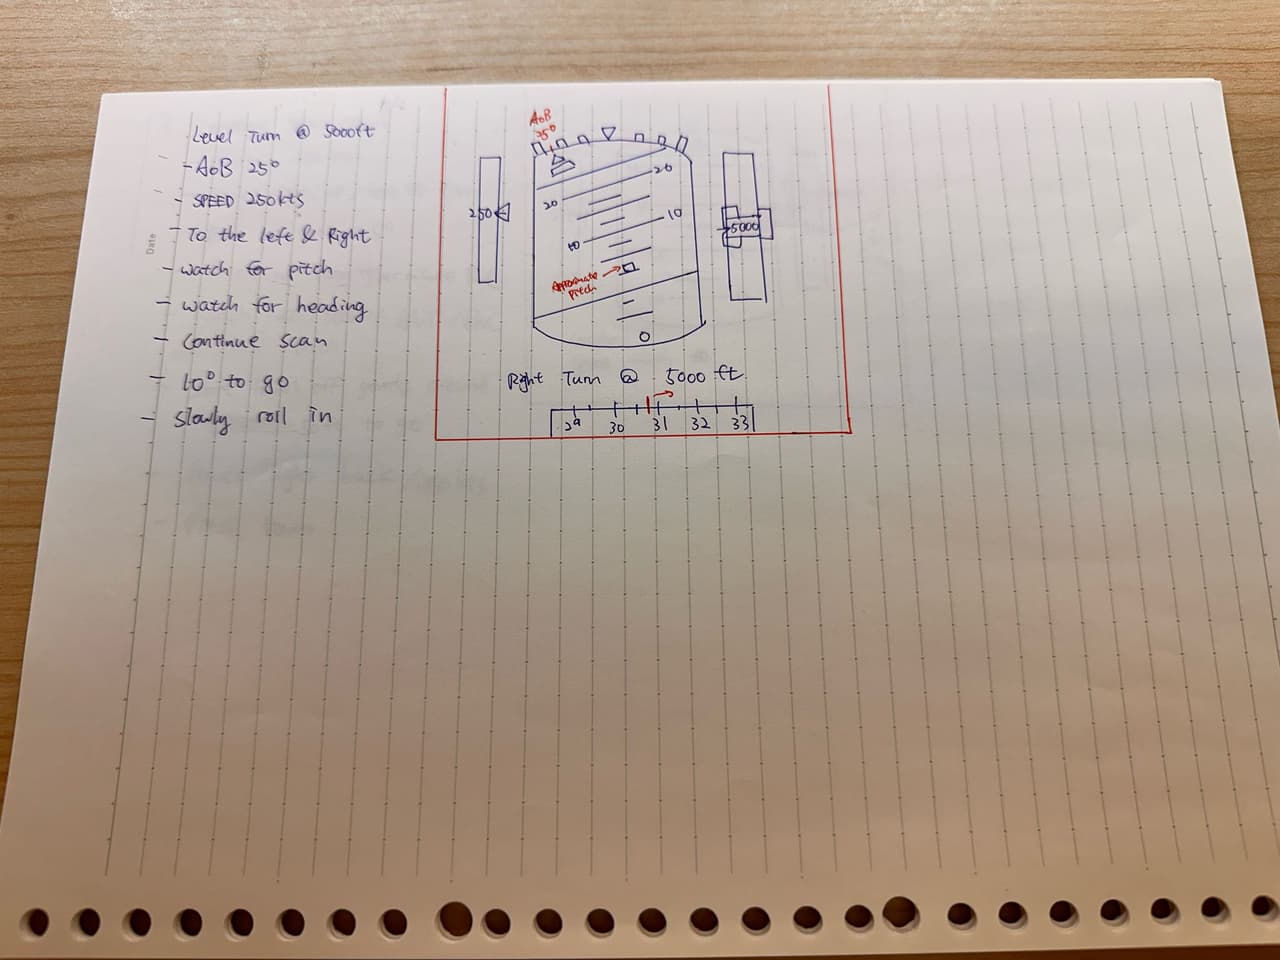 Level Turn @ 5000ft
- AoB 25°
- SPEED 250kts
- To the left & Right
- watch for pitch
- watch for heading
- Continue scan
- 10° to go
- Slowly roll in
Date
AoB
25°
20
20
10
10
250
5000
Approximate
pitch
Right Turn @ 5000 ft
29 30 31 32 33